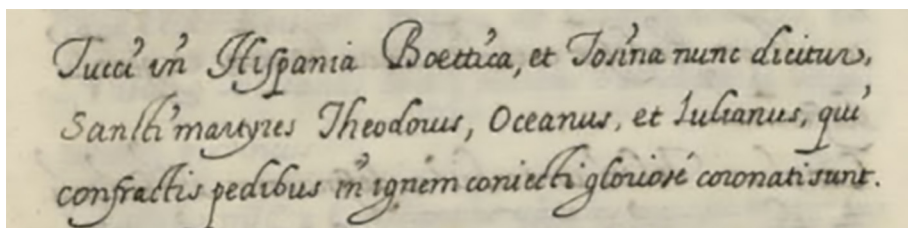 Tucci in Hispania Boettica, et Tosina nunc dicitur,
Sancti martyres Theodorus, Oceanus, et Iulianus, qui
confractis pedibus in ignem coniecti gloriosè coronati sunt.